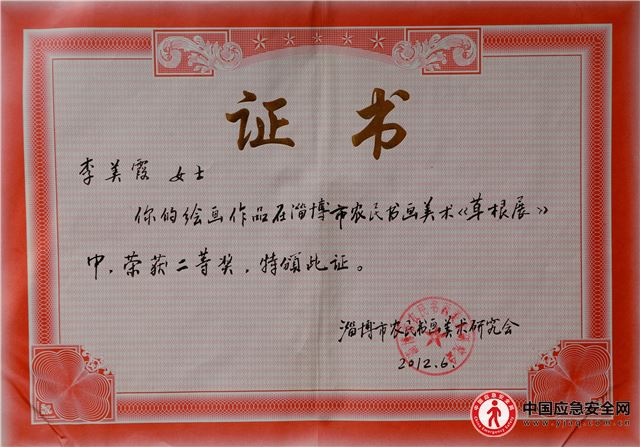 证 书
李美霞 女士
你的绘画作品在淄博市农民书画美术《草根展》
中，荣获二等奖，特颁此证。
淄博市农民书画美术研究会
2012.6.
中国应急安全网
www.yjaq.com.cn